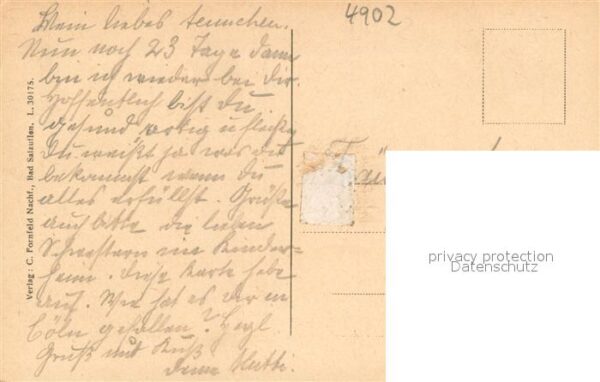 4902
Mein liebes Aennchen.
Nun noch 23 Tage dann
bin ich wieder bei dir.
Hoffentlich bist du
gesund artig u fleißig
Du weißt ja was du
bekommst wenn du
alles erfüllst. Grüße
auch bitte die lieben
Schwestern im Kinder=
heim. Diese Karte hebe
auf. Wie hat es dir in
Cöln gefallen? Herzl.
Gruß und Kuß
Deine Mutti.
Verlag: C. Fornfeld Nachf., Bad Salzuflen. L. 30175.
privacy protection
Datenschutz